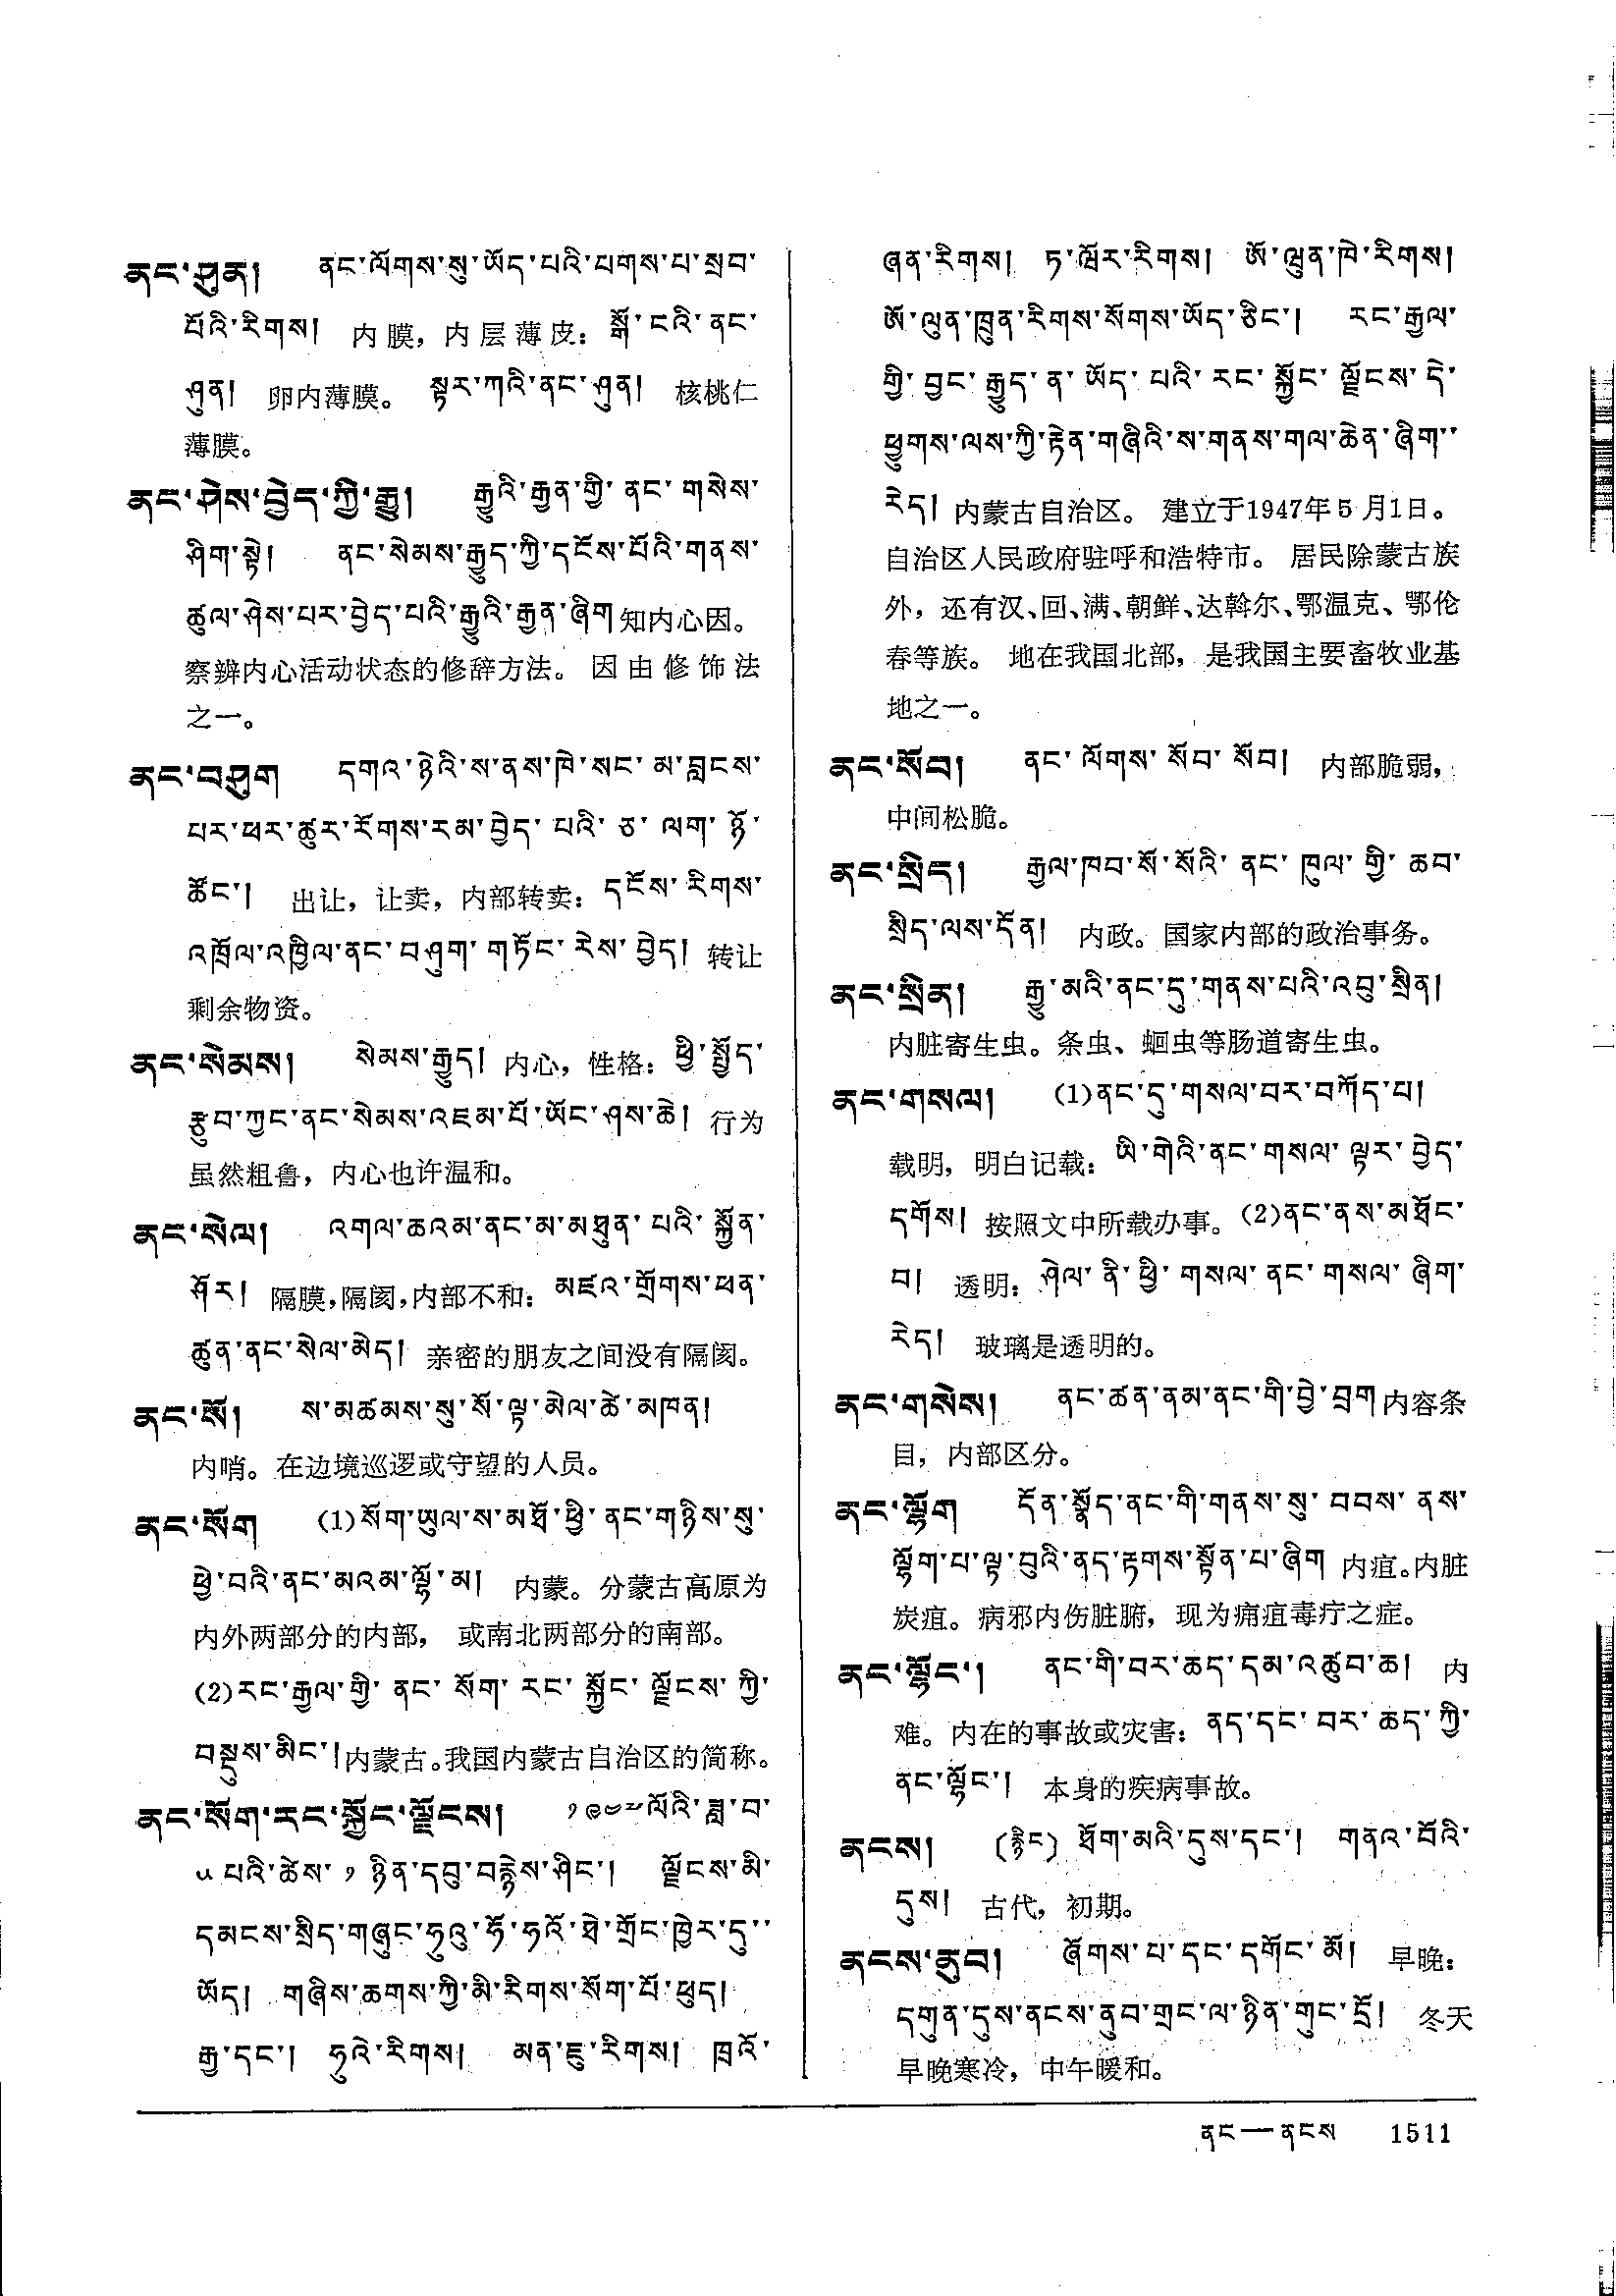 ནང་ཤུན། ནང་ལོགས་སུ་ཡོད་པའི་པགས་པ་སྲབ་
པོའི་རིགས། 内膜，内层薄皮：སྒོ་ངའི་ནང་
ཤུན། 卵内薄膜。 སྟར་ཀའི་ནང་ཤུན། 核桃仁
薄膜。
ནང་ཤེས་བྱེད་ཀྱི་རྒྱུ། རྒྱུའི་རྒྱན་གྱི་ནང་གསེས་
ཤིག་སྟེ། ནང་སེམས་རྒྱུད་ཀྱི་དངོས་པོའི་གནས་
ཚུལ་ཤེས་པར་བྱེད་པའི་རྒྱུའི་རྒྱན་ཞིག 知内心因。
察辨内心活动状态的修辞方法。 因由修饰法
之一。
ནང་བཤུག དགའ་ཉེའི་ས་ནས་ཁེ་སང་མ་བླངས་
པར་ཕར་ཚུར་རོགས་རམ་བྱེད་པའི་ཅ་ལག་ཉོ་
ཚོང་། 出让，让卖，内部转卖：དངོས་རིགས་
འཁྲོལ་འཁྱིལ་ནང་བཤུག་གཏོང་རེས་བྱེད། 转让
剩余物资。
ནང་སེམས། སེམས་རྒྱུད། 内心，性格：ཕྱི་སྤྱོད་
རྩུབ་ཀྱང་ནང་སེམས་འཇམ་པོ་ཡོང་ཤས་ཆེ། 行为
虽然粗鲁，内心也许温和。
ནང་སེལ། འགལ་ཆའམ་ནང་མ་མཐུན་པའི་སྐྱོན་
ཤོར། 隔膜，隔阂，内部不和：མཛའ་གྲོགས་ཕན་
ཚུན་ནང་སེལ་མེད། 亲密的朋友之间没有隔阂。
ནང་སོ། ས་མཚམས་སུ་སོ་ལྟ་མེལ་ཚེ་མཁན།
内哨。在边境巡逻或守望的人员。
ནང་སོག (1)སོག་ཡུལ་ས་མཐོ་ཕྱི་ནང་གཉིས་སུ་
ཕྱེ་བའི་ནང་མའམ་ལྷོ་མ། 内蒙。分蒙古高原为
内外两部分的内部， 或南北两部分的南部。
(2)རང་རྒྱལ་གྱི་ནང་སོག་རང་སྐྱོང་ལྗོངས་ཀྱི་
བསྡུས་མིང་། 内蒙古。我国内蒙古自治区的简称。
ནང་སོག་རང་སྐྱོང་ལྗོངས། ༡༩༤༧ལོའི་ཟླ་བ་
༥པའི་ཚེས་༡ཉིན་དབུ་བརྙེས་ཤིང་། ལྗོངས་མི་
དམངས་སྲིད་གཞུང་ཧུའུ་ཧོ་ཧའོ་ཐེ་གྲོང་ཁྱེར་དུ་་
ཡོད། གཞིས་ཆགས་ཀྱི་མི་རིགས་སོག་པོ་ཕུད།
རྒྱ་དང་། ཧུའེ་རིགས། མན་ཇུ་རིགས། ཁྲའོ་
ཞན་རིགས། ཏ་ཝོར་རིགས། ཨོ་ཝུན་ཁེ་རིགས།
ཨོ་ལུན་ཁྲུན་རིགས་སོགས་ཡོད་ཅིང་། རང་རྒྱལ་
གྱི་བྱང་རྒྱུད་ན་ཡོད་པའི་རང་སྐྱོང་ལྗོངས་དེ་
ཕྱུགས་ལས་ཀྱི་རྟེན་གཞིའི་ས་གནས་གལ་ཆེན་ཞིག་་
རེད། 内蒙古自治区。 建立于1947年5月1日。
自治区人民政府驻呼和浩特市。 居民除蒙古族
外，还有汉、回、满、朝鲜、达斡尔、鄂温克、鄂伦
春等族。 地在我国北部，是我国主要畜牧业基
地之一。
ནང་སོབ། ནང་ལོགས་སོབ་སོབ། 内部脆弱，
中间松脆。
ནང་སྲིད། རྒྱལ་ཁབ་སོ་སོའི་ནང་ཁུལ་གྱི་ཆབ་
སྲིད་ལས་དོན། 内政。国家内部的政治事务。
ནང་སྲིན། རྒྱུ་མའི་ནང་དུ་གནས་པའི་འབུ་སྲིན།
内脏寄生虫。条虫、蛔虫等肠道寄生虫。
ནང་གསལ། (1)ནང་དུ་གསལ་བར་བཀོད་པ།
载明，明白记载：ཡི་གེའི་ནང་གསལ་ལྟར་བྱེད་
དགོས། 按照文中所载办事。(2)ནང་ནས་མཐོང་
བ། 透明：ཤེལ་ནི་ཕྱི་གསལ་ནང་གསལ་ཞིག་
རེད། 玻璃是透明的。
ནང་གསེས། ནང་ཚན་ནམ་ནང་གི་བྱེ་བྲག 内容条
目，内部区分。
ནང་ལྷོག དོན་སྣོད་ནང་གི་གནས་སུ་བབས་ནས་
ལྷོག་པ་ལྟ་བུའི་ནད་རྟགས་སྟོན་པ་ཞིག 内疽。内脏
炭疽。病邪内伤脏腑，现为痈疽毒疔之症。
ནང་ལྷོང་། ནང་གི་བར་ཆད་དམ་འཚུབ་ཆ། 内
难。内在的事故或灾害：ནད་དང་བར་ཆད་ཀྱི་
ནང་ལྷོང་། 本身的疾病事故。
ནངས། (རྙིང) ཐོག་མའི་དུས་དང་། གནའ་བོའི་
དུས། 古代，初期。
ནངས་ནུབ། ཞོགས་པ་དང་དགོང་མོ། 早晚：
དགུན་དུས་ནངས་ནུབ་གྲང་ལ་ཉིན་གུང་དྲོ། 冬天
早晚寒冷，中午暖和。
ནང—ནངས 1511